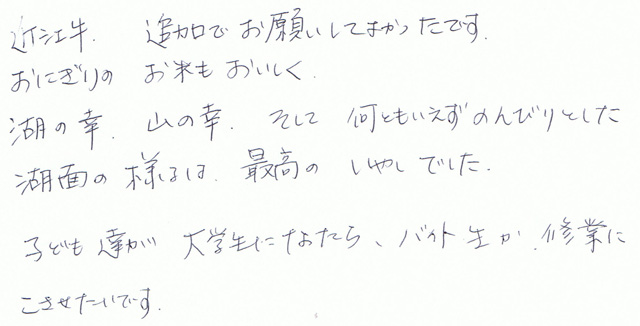 近江牛、追加でお願いしてよかったです。
おにぎりの お米も おいしく、
湖の幸、山の幸、そして 何ともいえず のんびりとした
湖面の 様子は、最高の いやし でした。
子ども達が 大学生になたら、バイト生か、修業に
こさせたいです。